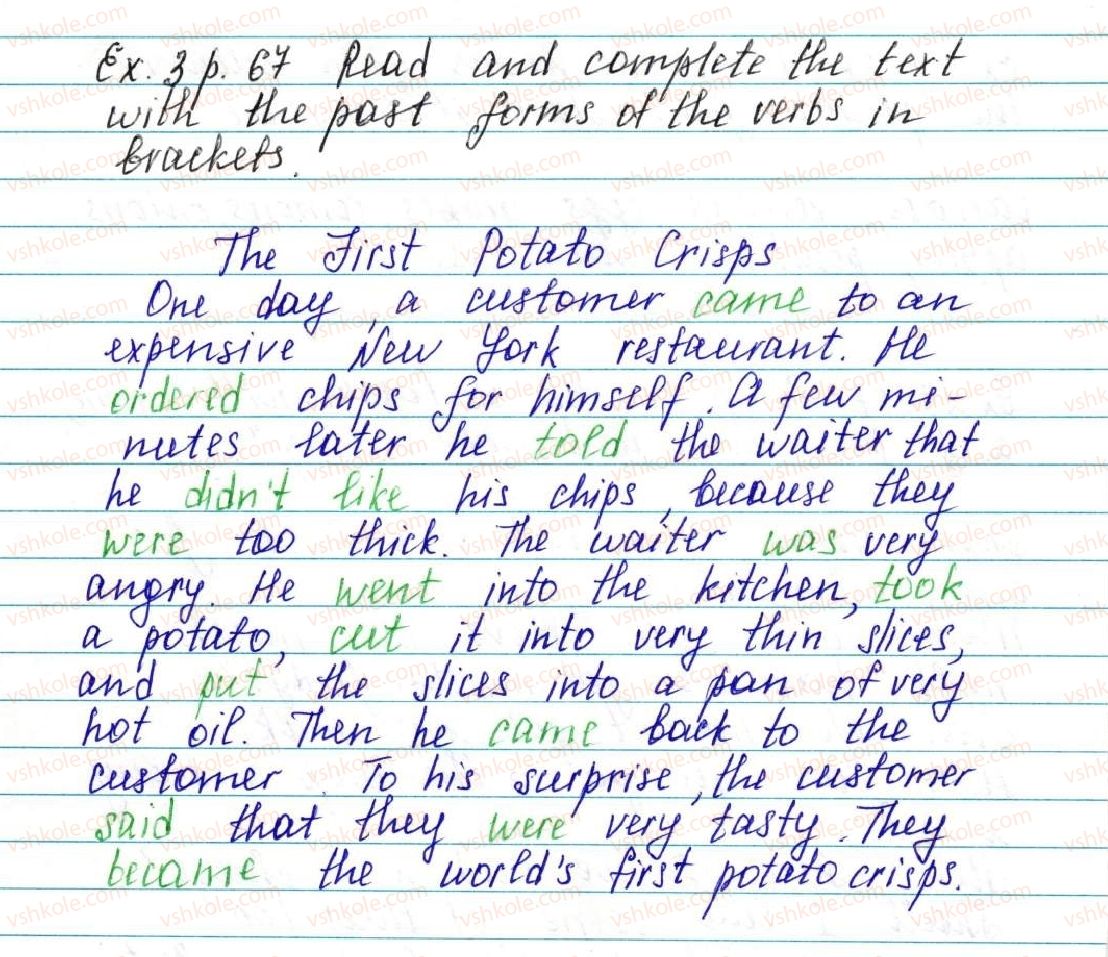 Ex. 3 p. 67 Read and complete the text
with the past forms of the verbs in
brackets.
The First Potato Crisps
One day, a customer came to an
expensive New York restaurant. He
ordered chips for himself. A few mi-
nutes later he told the waiter that
he didn't like his chips, because they
were too thick. The waiter was very
angry. He went into the kitchen, took
a potato, cut it into very thin slices,
and put the slices into a pan of very
hot oil. Then he came back to the
customer. To his surprise, the customer
said that they were very tasty. They
became the world's first potato crisps.
vshkole.com